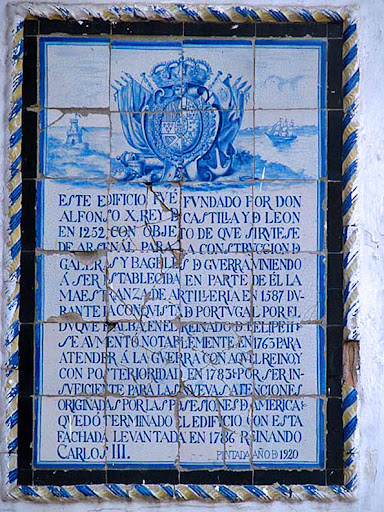 ESTE EDIFICIO FVE FVNDADO POR DON
ALFONSO X, REY D CASTILLA Y D LEON
EN 1252 CON OBJETO DE QVE SIRVIESE
DE ARSENAL PARA LA CONSTRUCCION D
GALERAS Y BAGELES D GVERRA VINIENDO
Á SER ESTABLECIDA EN PARTE DE ÉL LA
MAESTRANZA DE ARTILLERIA EN 1587 DV
RANTE LA CONQVISTA D PORTVGAL POR EL
DVQVE D ALBA EN EL REINADO D FELIPE II
SE AVMENTÓ NOTABLEMENTE EN 1763 PARA
ATENDER Á LA GVERRA CON AQVEL REINO Y
CON POSTERIORIDAD EN 1783 POR SER IN-
SVFICIENTE PARA LAS NVEVAS ATENCIONES
ORIGINADAS POR LAS POSESIONES D AMERICA
QVEDÓ TERMINADO EL EDIFICIO CON ESTA
FACHADA LEVANTADA EN 1786 REINANDO
CARLOS III.
PINTADA AÑO D 1920